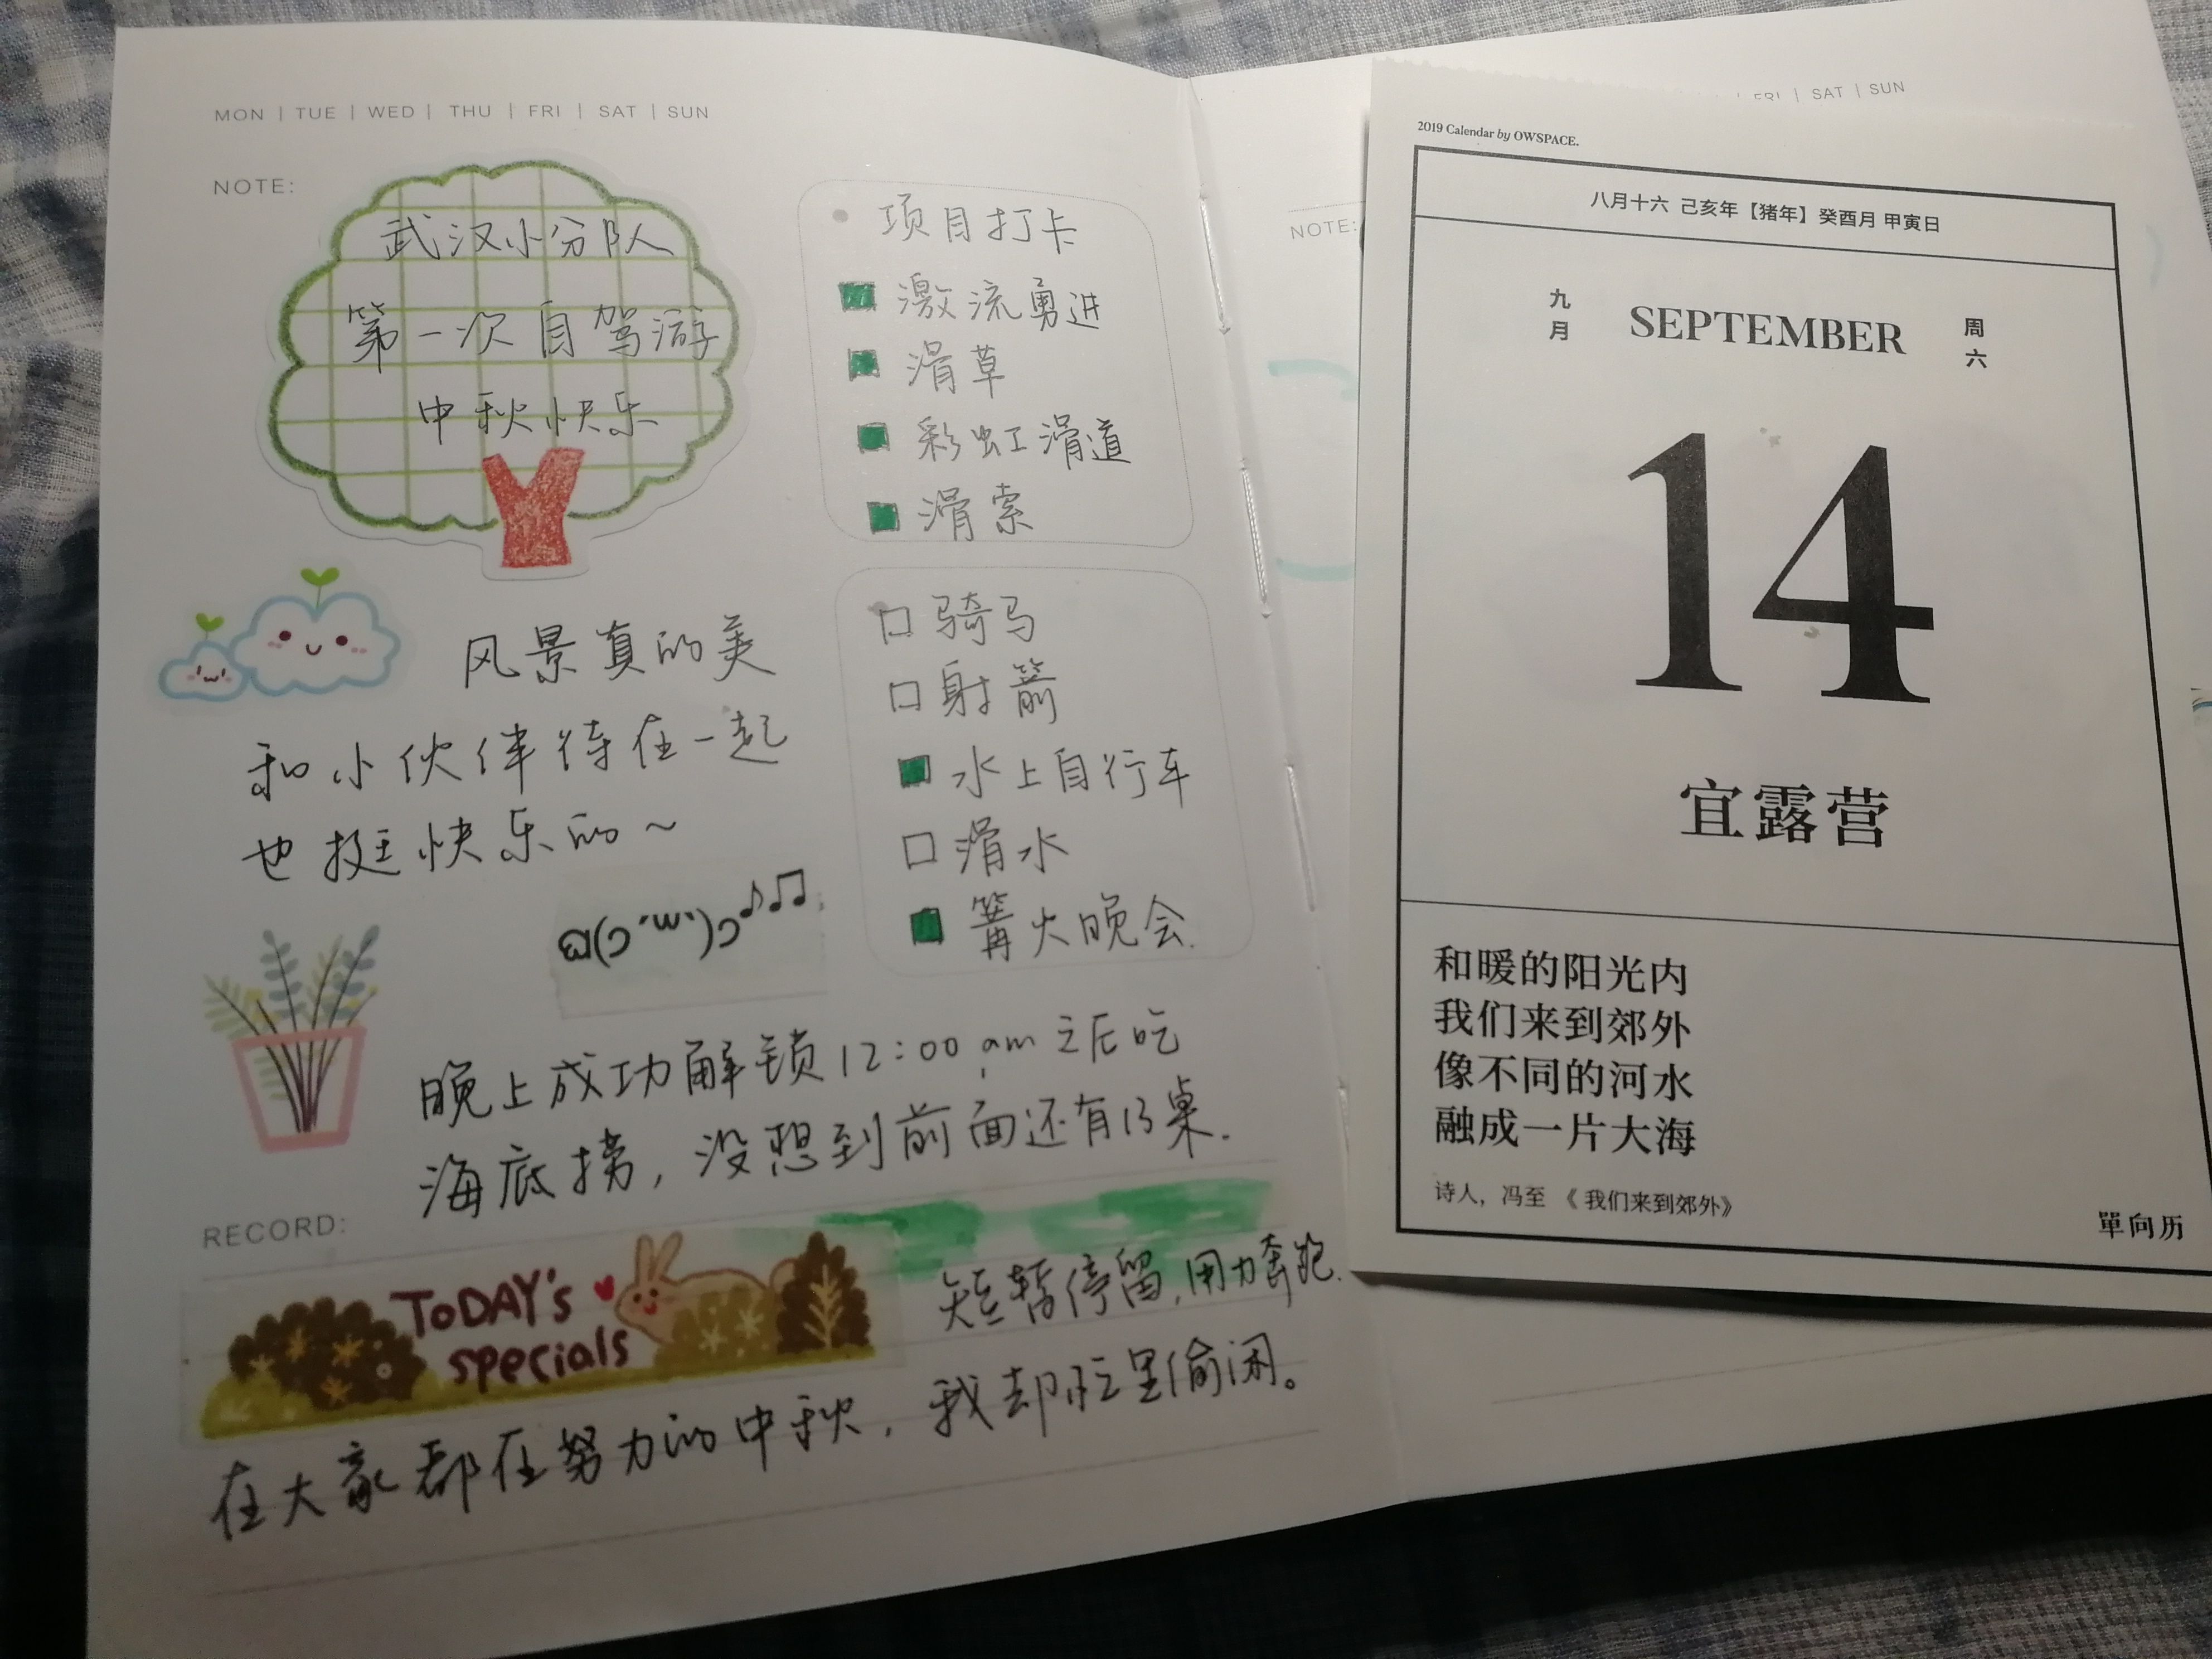 MON | TUE | WED | THU | FRI | SAT | SUN
NOTE:
武汉小分队
第一次自驾游
中秋快乐
项目打卡
激流勇进
滑草
彩虹滑道
滑索
口骑马
口射箭
水上自行车
口滑水
篝火晚会.
风景真的美
和小伙伴待在一起
也挺快乐的～
晚上成功解锁12:00 am之后吃
海底捞,没想到前面还有13桌.
RECORD:
TODAY's
specials
短暂停留,用力奔跑.
在大家都在努力的中秋,我却忙里偷闲。
FRI | SAT | SUN
NOTE:
2019 Calendar by OWSPACE.
八月十六 己亥年【猪年】癸酉月 甲寅日
九月 SEPTEMBER 周六
14
宜露营
和暖的阳光内
我们来到郊外
像不同的河水
融成一片大海
诗人，冯至 《我们来到郊外》
單向历